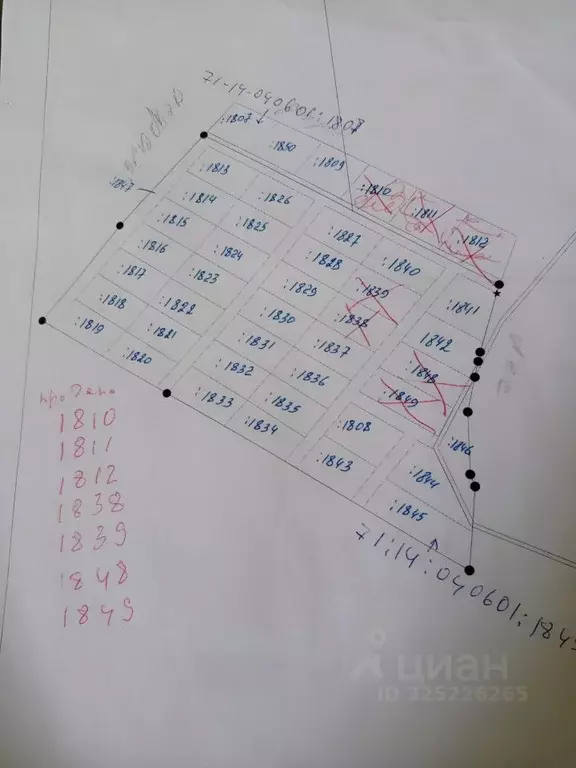 71-14-040601:1807
:1807
:1850
:1809
:1810
:1811
:1812
:1847
:1813
:1814
:1826
:1815
:1825
:1827
:1840
:1816
:1824
:1828
:1839
:1841
:1817
:1823
:1829
:1838
1842
:1818
:1822
:1830
:1837
:1848
:1819
:1821
:1831
:1836
:1849
:1820
:1832
:1835
:1808
:1846
:1833
:1834
:1843
:1844
:1845
71:14:040601:1845
продано
1810
1811
1812
1838
1839
1848
1849
циан
ID 325226265